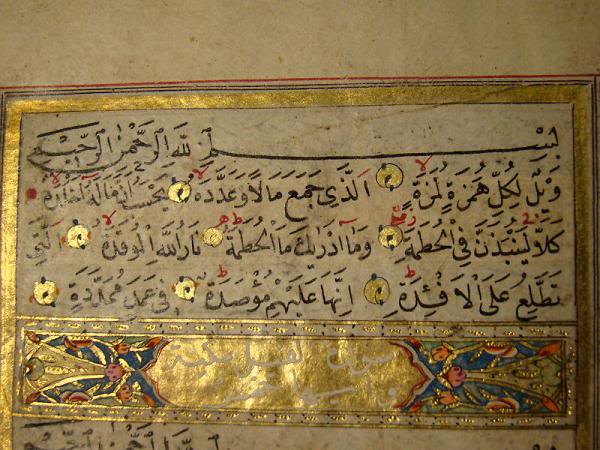 بِسْمِ اللهِ الرَّحْمٰنِ الرَّحِيمِ
وَيْلٌ لِكُلِّ هُمَزَةٍ لُمَزَةٍ اَلَّذِى جَمَعَ مَالًا وَعَدَّدَهُ يَحْسَبُ اَنَّ مَالَهُ اَخْلَدَهُ
كَلَّا لَيُنْبَذَنَّ فِى الْحُطَمَةِ وَمَا اَدْرٰيكَ مَا الْحُطَمَةُ نَارُ اللهِ الْمُوقَدَةُ اَلَّتِى
تَطَّلِعُ عَلَى الْاَفْئِدَةِ اِنَّهَا عَلَيْهِمْ مُؤْصَدَةٌ فِى عَمَدٍ مُمَدَّدَةٍ
سورة الفيل مكية